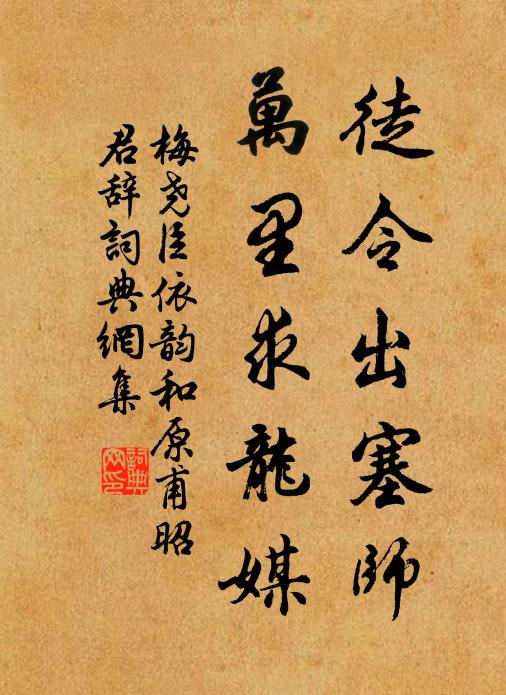 徒令出塞師
萬里求龍媒
梅尧臣依韵和原甫昭
君辞詞典網集
詞典網印